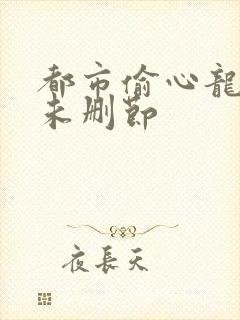 都市偷心龍
未删節
夜長天